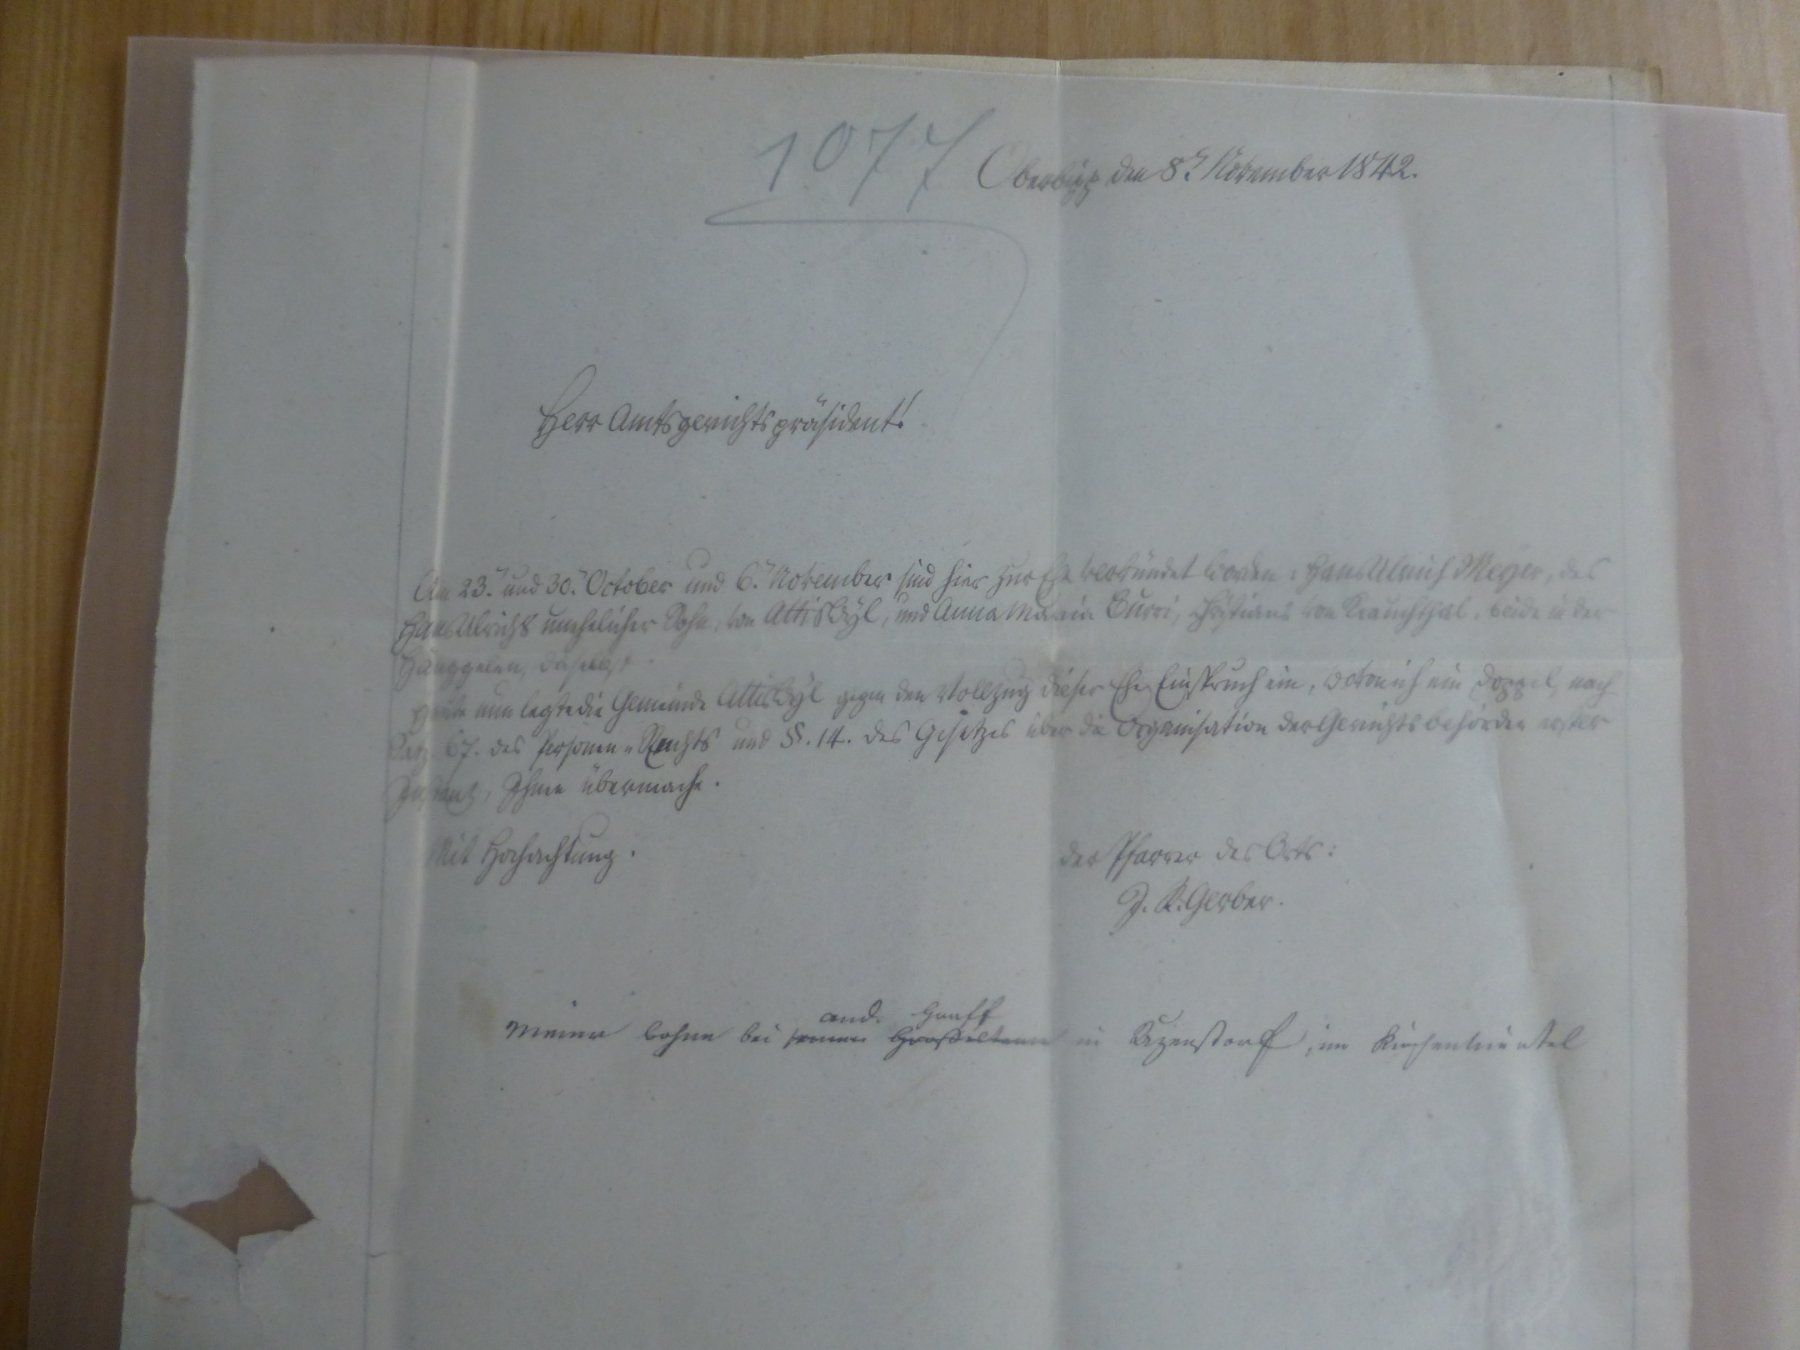 1077
Oberbipp den 8.n November 1842.
Herr Amtsgerichtspräsident!
Am 23.n und 30.n October und 6.n November sind hier zur Ehe verkündet worden: Hans Ulrich Meyer, des
Hans Ulrichs unehelicher Sohn, von Attiswyl, und Anna Maria Burri, Christians von Krauchthal, beide in der
daselbst.
nun legte die Gemeinde Attiswyl gegen den Vollzug dieser Ehe Einspruch ein, wovon ich ein Doppel, nach
Satz. 67. des Personen-Rechts und §. 14. des Gesetzes über die Organisation der Gerichtsbehörden erster
Instanz, Ihnen übermache.
Mit Hochachtung.
der Pfarrer des Orts:
J. R. Gerber.
and.
Meier wohne bei seinen Großeltern in , im